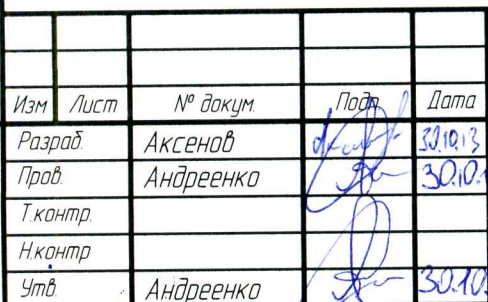 Изм Лист № докум. Подп. Дата
Разраб. Аксенов 30.10.13
Пров. Андреенко 30.10.1
Т.контр.
Н.контр
Утв. Андреенко 30.10